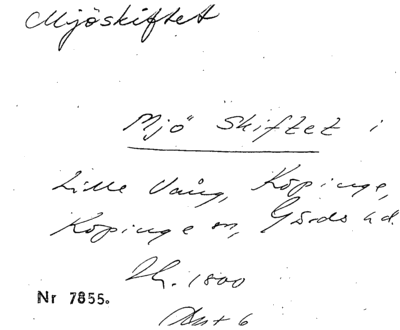 Mjöskiftet
Mjö Skiftet i
Lille Vång, Köpinge,
Köpinge sn, Gärds hd.
Nr 7855.